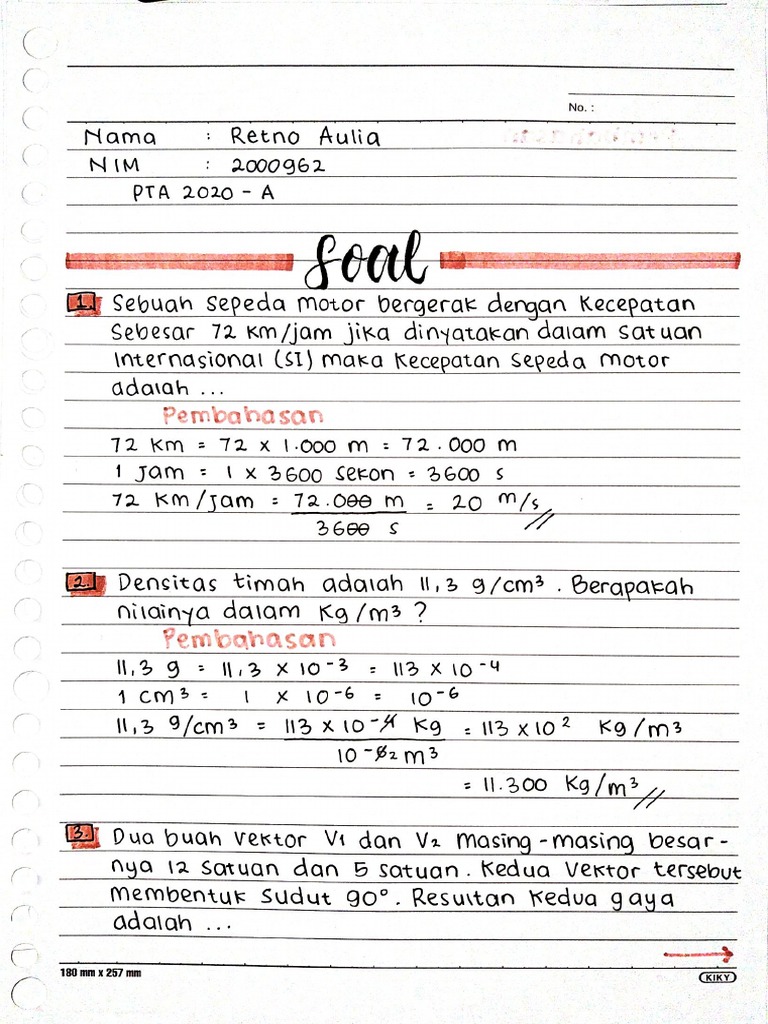 No. :
Nama : Retno Aulia
NIM : 2000962
PTA 2020 - A
Soal
1. Sebuah sepeda motor bergerak dengan kecepatan
sebesar 72 km/jam jika dinyatakan dalam satuan
Internasional (SI) maka kecepatan sepeda motor
adalah ...
Pembahasan
72 km = 72 x 1.000 m = 72.000 m
1 jam = 1 x 3600 sekon = 3600 s
72 km/jam = 72.000 m = 20 m/s //
3600 s
2. Densitas timah adalah 11,3 g/cm³. Berapakah
nilainya dalam kg/m³ ?
Pembahasan
11,3 g = 11,3 x 10⁻³ = 113 x 10⁻⁴
1 cm³ = 1 x 10⁻⁶ = 10⁻⁶
11,3 g/cm³ = 113 x 10⁻⁴ kg = 113 x 10² kg/m³
10⁻⁶2 m³
= 11.300 kg/m³ //
3. Dua buah vektor V₁ dan V₂ masing-masing besar-
nya 12 satuan dan 5 satuan. Kedua vektor tersebut
membentuk sudut 90°. Resultan kedua gaya
adalah ...
180 mm x 257 mm
KIKY